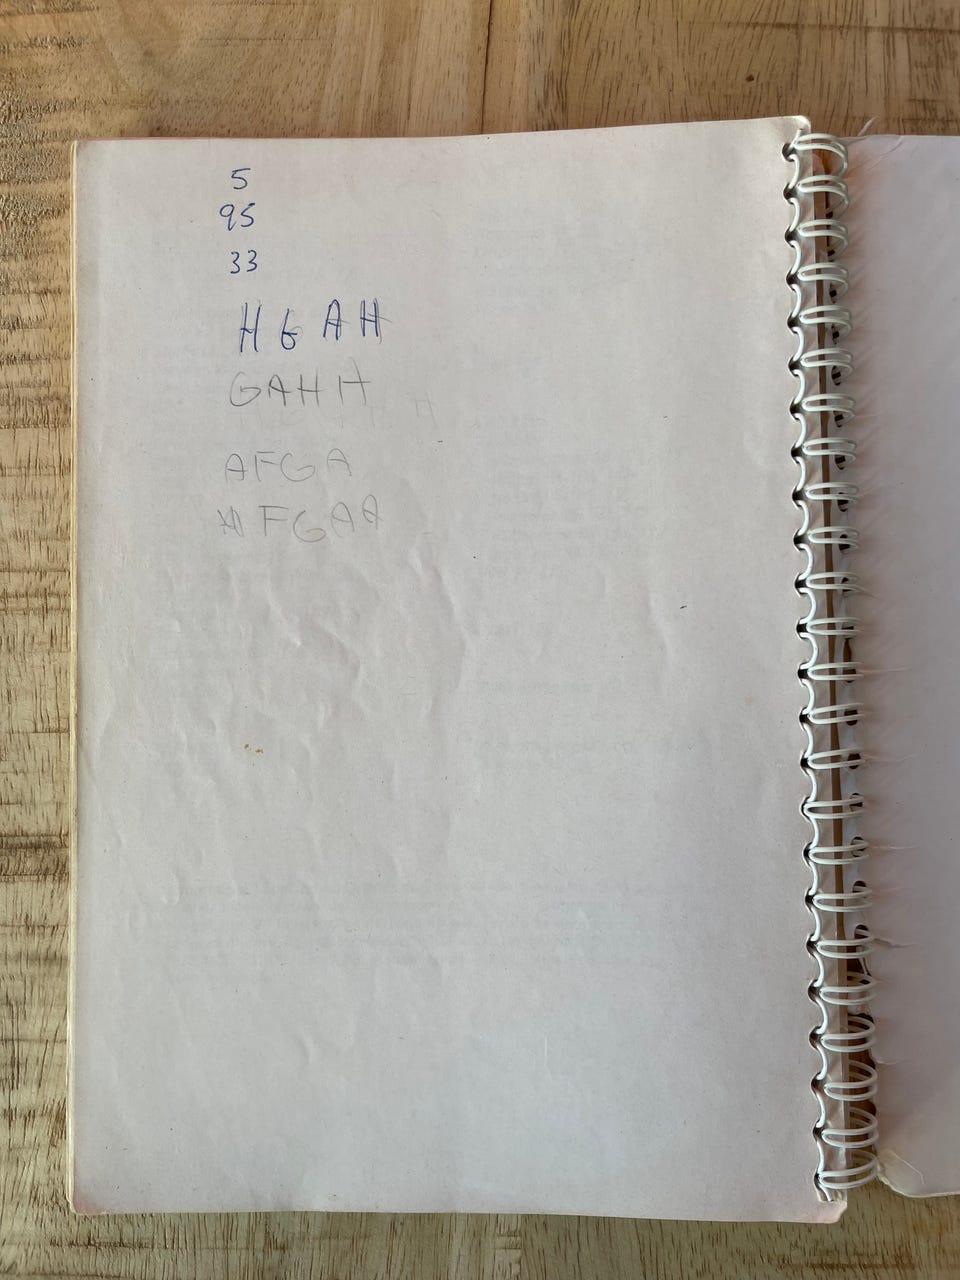 5
95
33
H G A H
GAHH
H
AFGA
FGAA